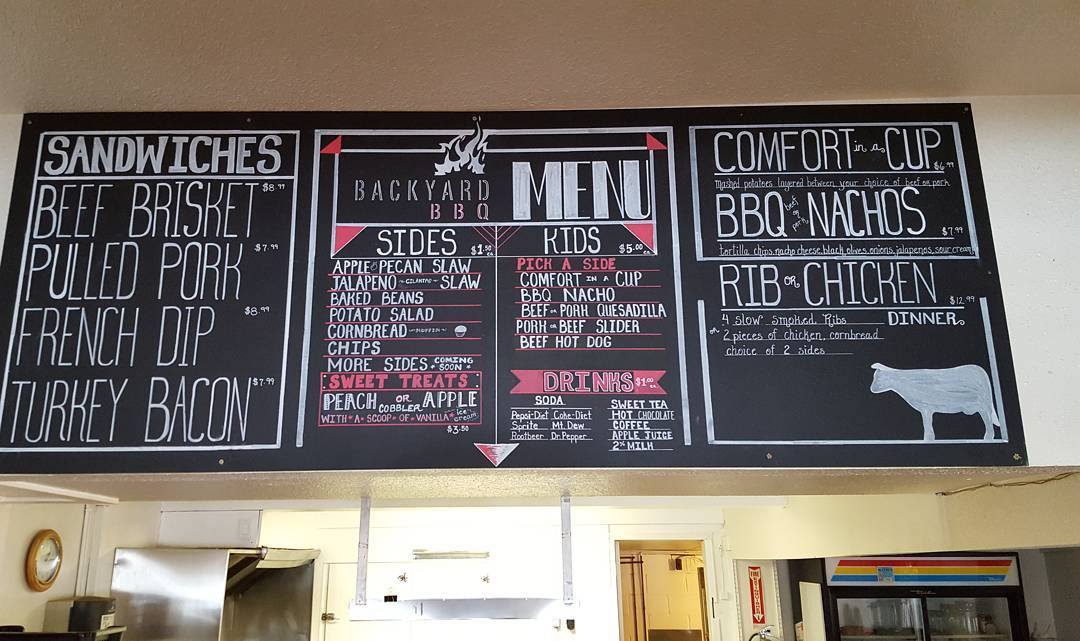 SANDWICHES
BEEF BRISKET $8.99
PULLED PORK $7.99
FRENCH DIP $8.99
TURKEY BACON $7.99
BACKYARD
BBQ
MENU
SIDES $1.50 ea.
APPLE PECAN SLAW
JALAPENO CILANTRO SLAW
BAKED BEANS
POTATO SALAD
CORNBREAD MUFFIN
CHIPS
MORE SIDES COMING SOON
SWEET TREATS
PEACH OR APPLE
COBBLER
WITH A SCOOP OF VANILLA ice cream
$3.50
KIDS $5.00 ea.
PICK A SIDE
COMFORT IN A CUP
BBQ NACHO
BEEF OR PORK QUESADILLA
PORK OR BEEF SLIDER
BEEF HOT DOG
DRINKS $1.00 ea.
SODA
Pepsi-Diet Coke-Diet
Sprite Mt. Dew
Rootbeer Dr. Pepper
SWEET TEA
HOT CHOCOLATE
COFFEE
APPLE JUICE
2% MILK
COMFORT in a CUP $6.99
Mashed potatoes layered between your choice of beef or pork
BBQ beef or pork NACHOS $7.99
tortilla chips, nacho cheese, black olives, onions, jalapenos, sour cream
RIB OR CHICKEN $12.99
DINNER
4 slow smoked ribs
or 2 pieces of chicken, cornbread
choice of 2 sides
FIRE